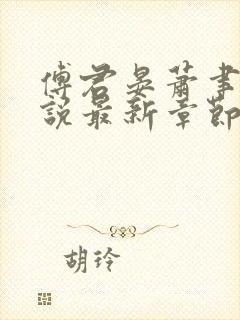 傅君晏萧事
說最新章節
胡玲